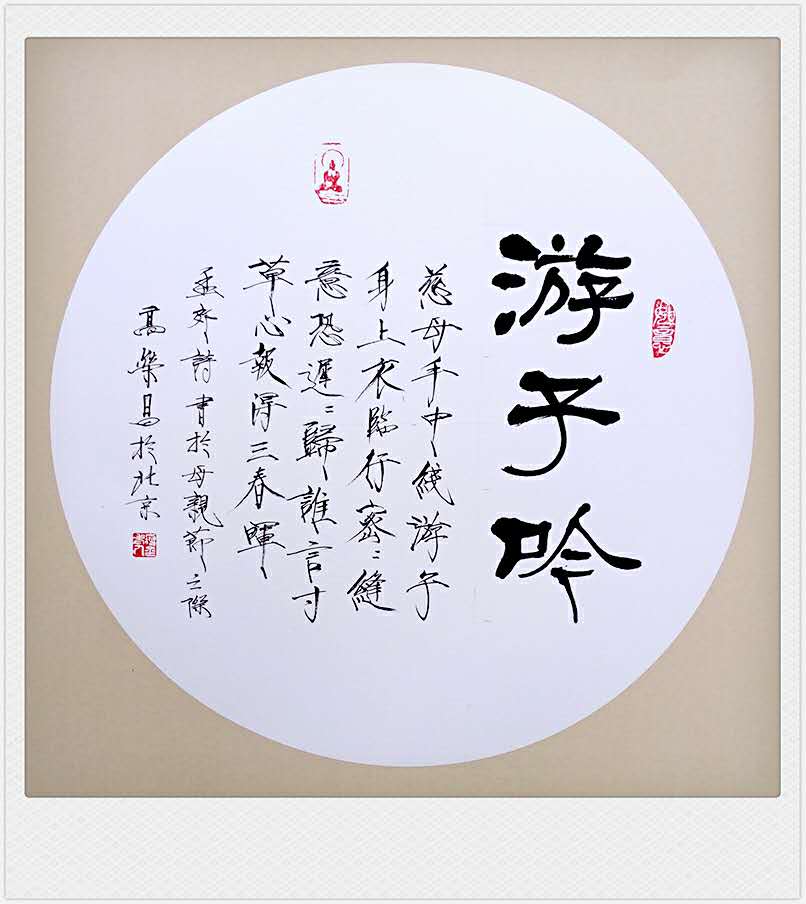 游子吟
慈母手中綫游子
身上衣臨行密〻縫
意恐遲〻歸誰言寸
草心報得三春暉
孟郊詩書於母親節之際
高榮昌於北京